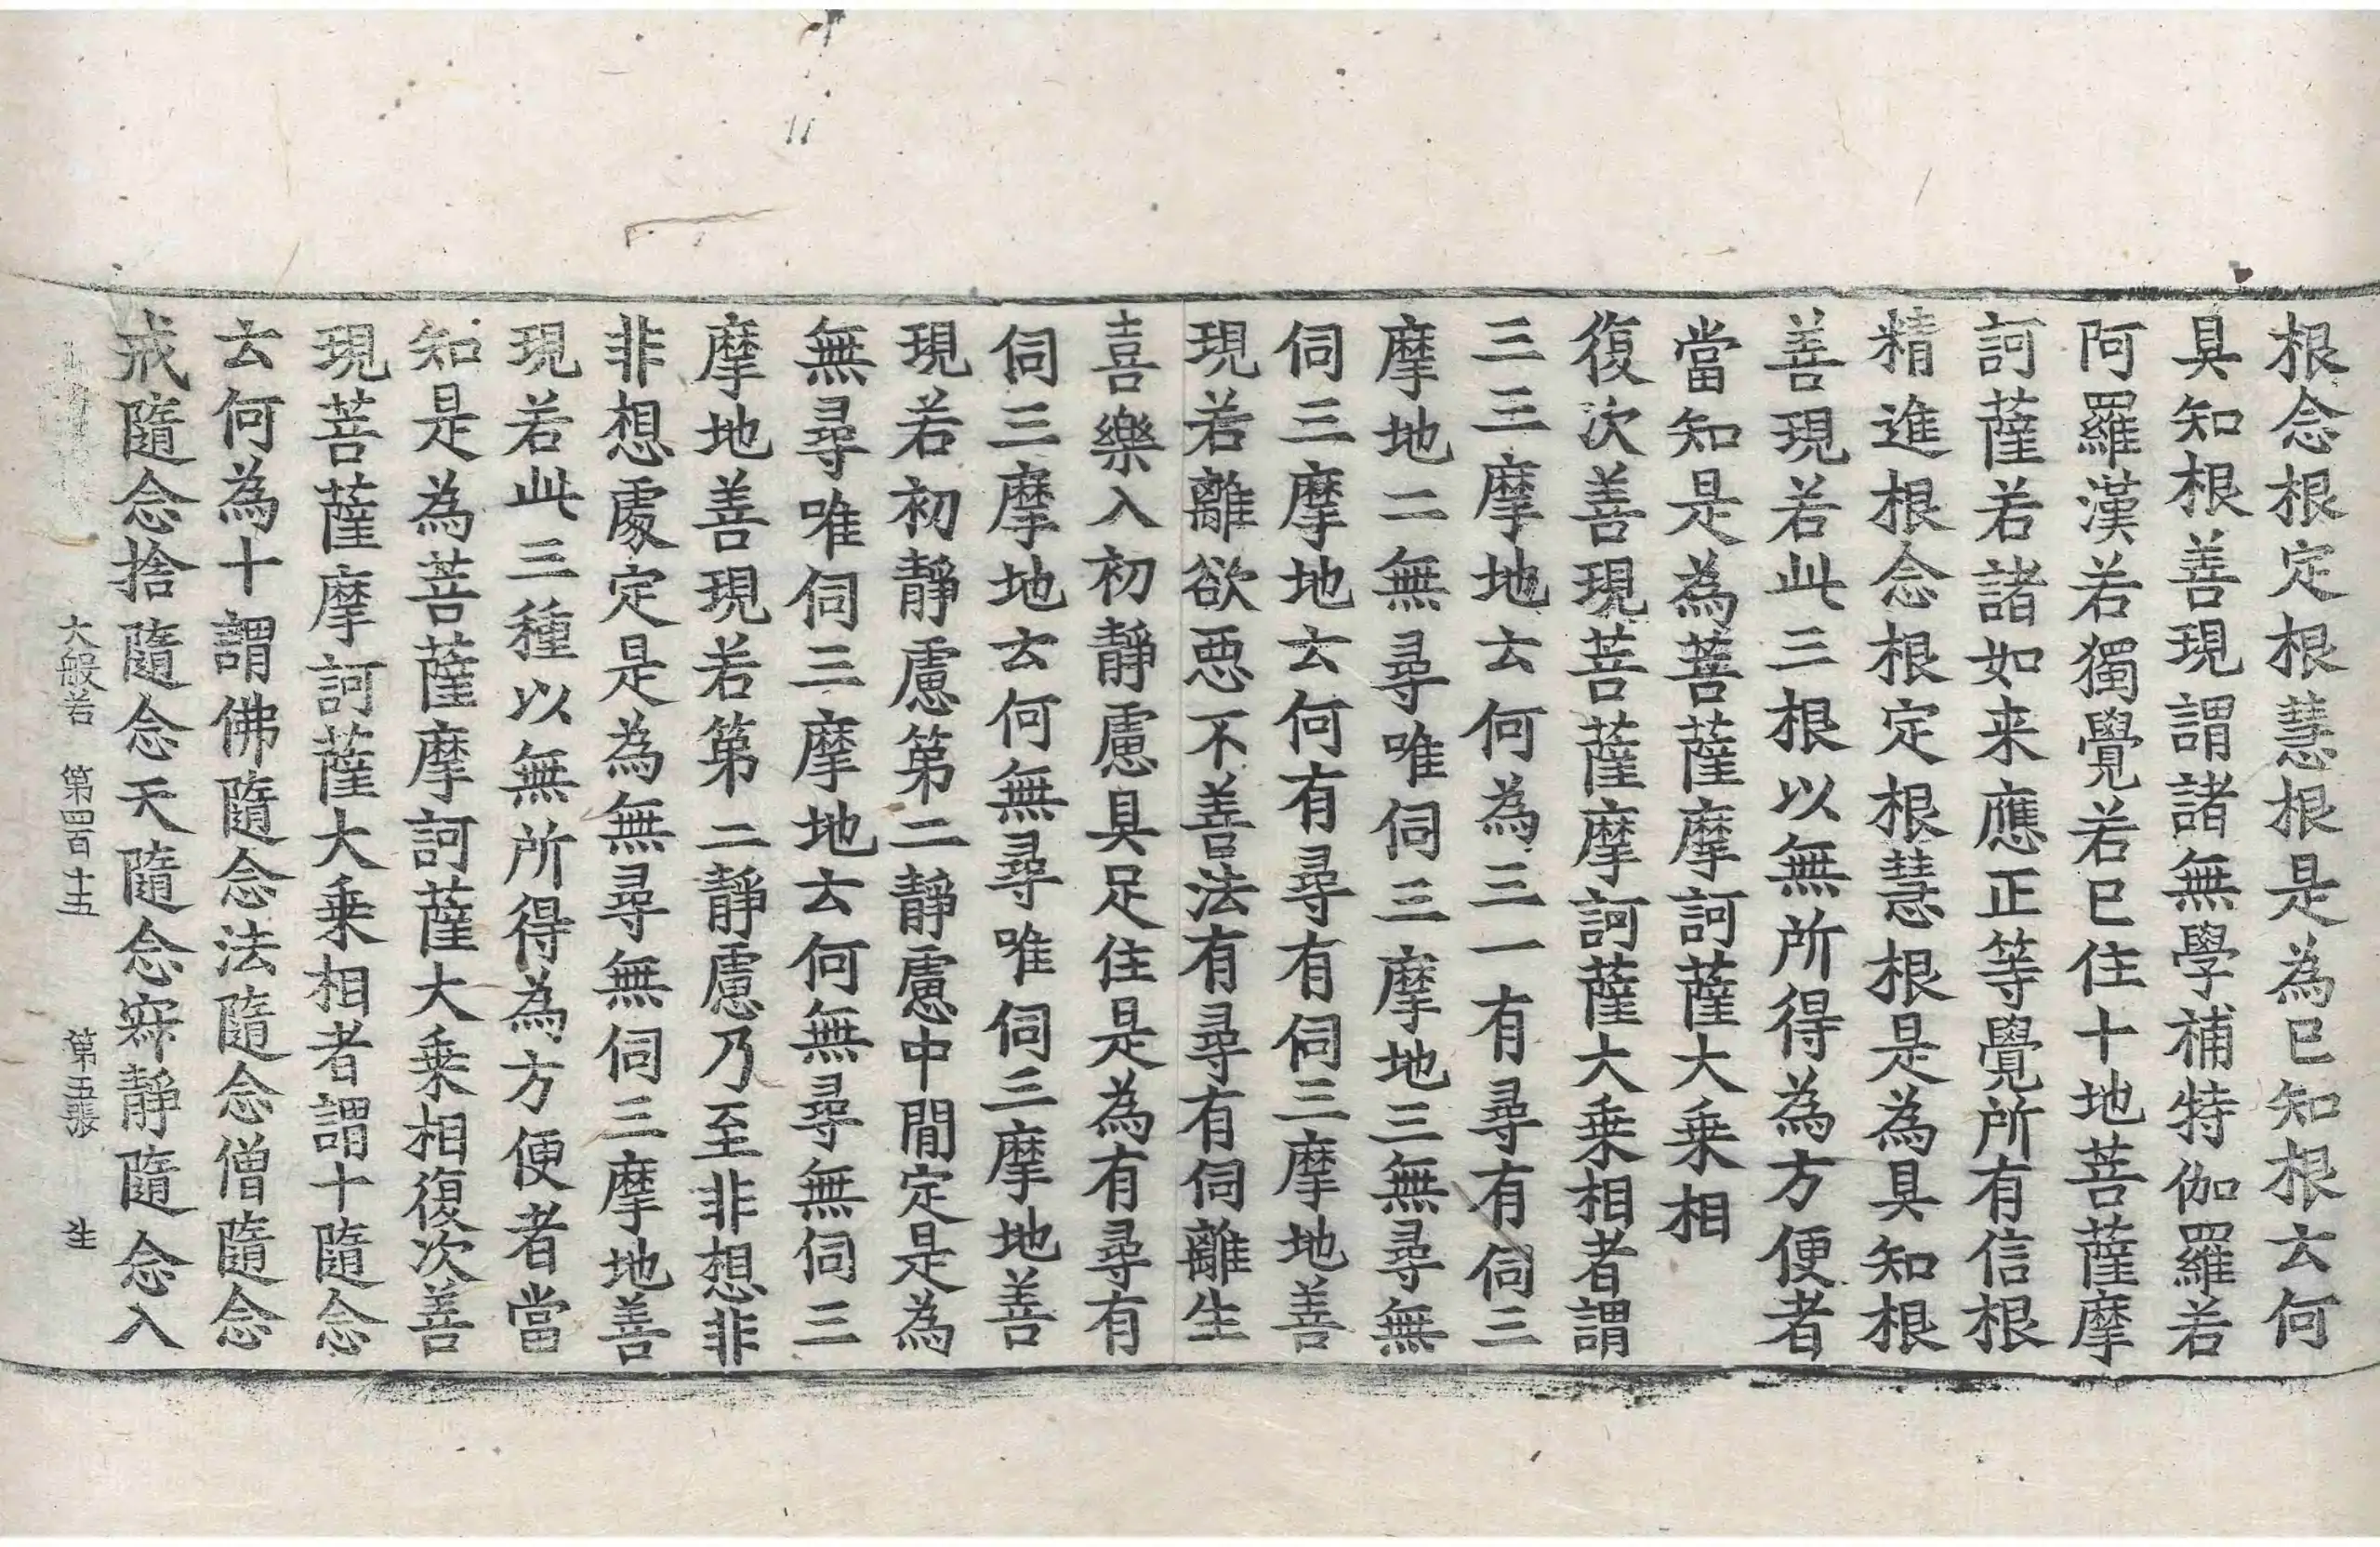 根念根定根慧根是為已知根云何
具知根善現謂諸無學補特伽羅若
阿羅漢若獨覺若已住十地菩薩摩
訶薩若諸如来應正等覺所有信根
精進根念根定根慧根是為具知根
善現若此三根以無所得為方便者
當知是為菩薩摩訶薩大乗相
復次善現菩薩摩訶薩大乗相者謂
三三摩地云何為三一有尋有伺三
摩地二無尋唯伺三摩地三無尋無
伺三摩地云何有尋有伺三摩地善
現若離欲惡不善法有尋有伺離生
喜樂入初靜慮具足住是為有尋有
伺三摩地云何無尋唯伺三摩地善
現若初靜慮第二靜慮中閒定是為
無尋唯伺三摩地云何無尋無伺三
摩地善現若第二靜慮乃至非想非
非想處定是為無尋無伺三摩地善
現若此三種以無所得為方便者當
知是為菩薩摩訶薩大乗相復次善
現菩薩摩訶薩大乗相者謂十隨念
云何為十謂佛隨念法隨念僧隨念
戒隨念捨隨念天隨念寂靜隨念入
大般若 第四百十五 第五張 生